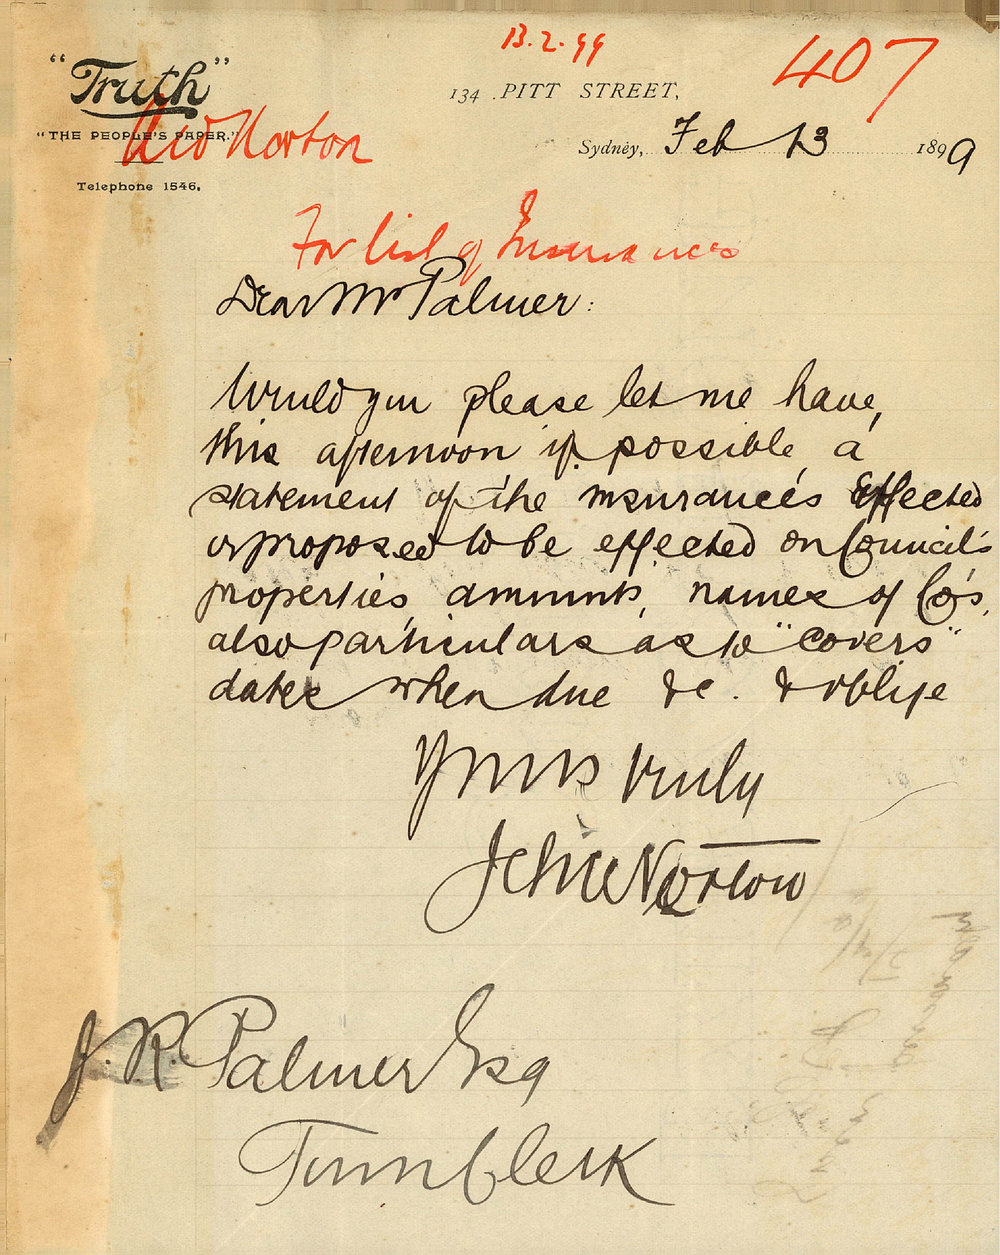 13.2.99
407
"Truth"
134 PITT STREET,
"THE PEOPLE'S PAPER."
Ald Norton
Sydney, Feb 13 1899
Telephone 1546.
For list of Insurances
Dear Mr Palmer:
Would you please let me have,
this afternoon if possible, a
statement of the insurances effected
or proposed to be effected on Council's
properties, amounts, names of Co's,
also particulars as to "covers"
dates when due &c. & oblige
Yours truly
John Norton
J. R. Palmer Esq
Town Clerk